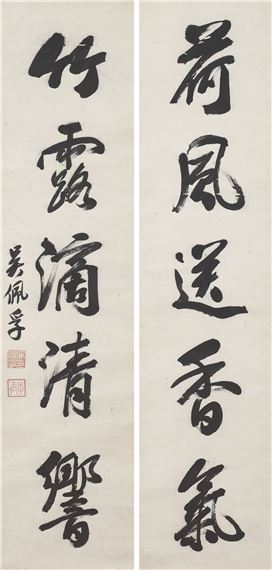 荷風送香氣
竹露滴清響
吳佩孚